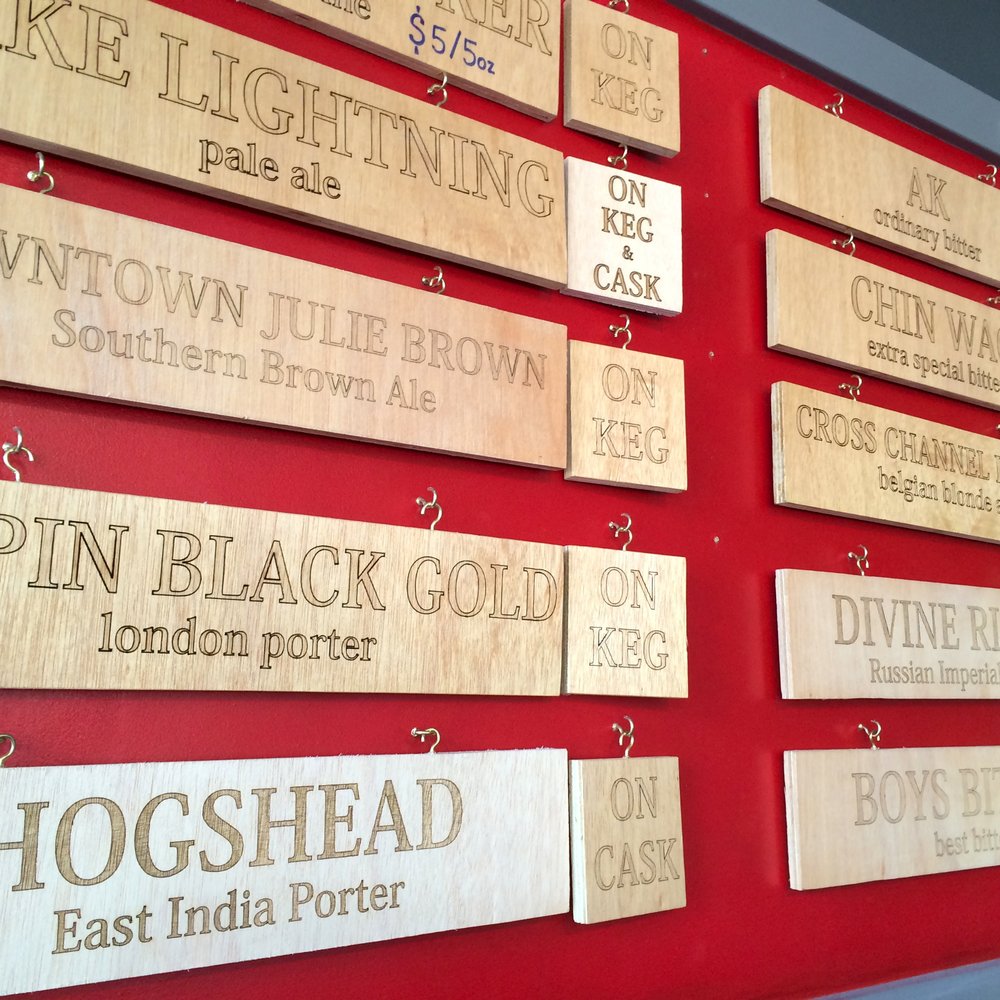 $5/5oz
ON
KEG
LIGHTNING
pale ale
ON
KEG
&
CASK
JULIE BROWN
Southern Brown Ale
ON
KEG
BLACK GOLD
london porter
ON
KEG
HOGSHEAD
East India Porter
ON
CASK
AK
ordinary bitter
CHIN
extra special
CROSS CHANNEL
belgian blonde
DIVINE
Russian
BOYS
best